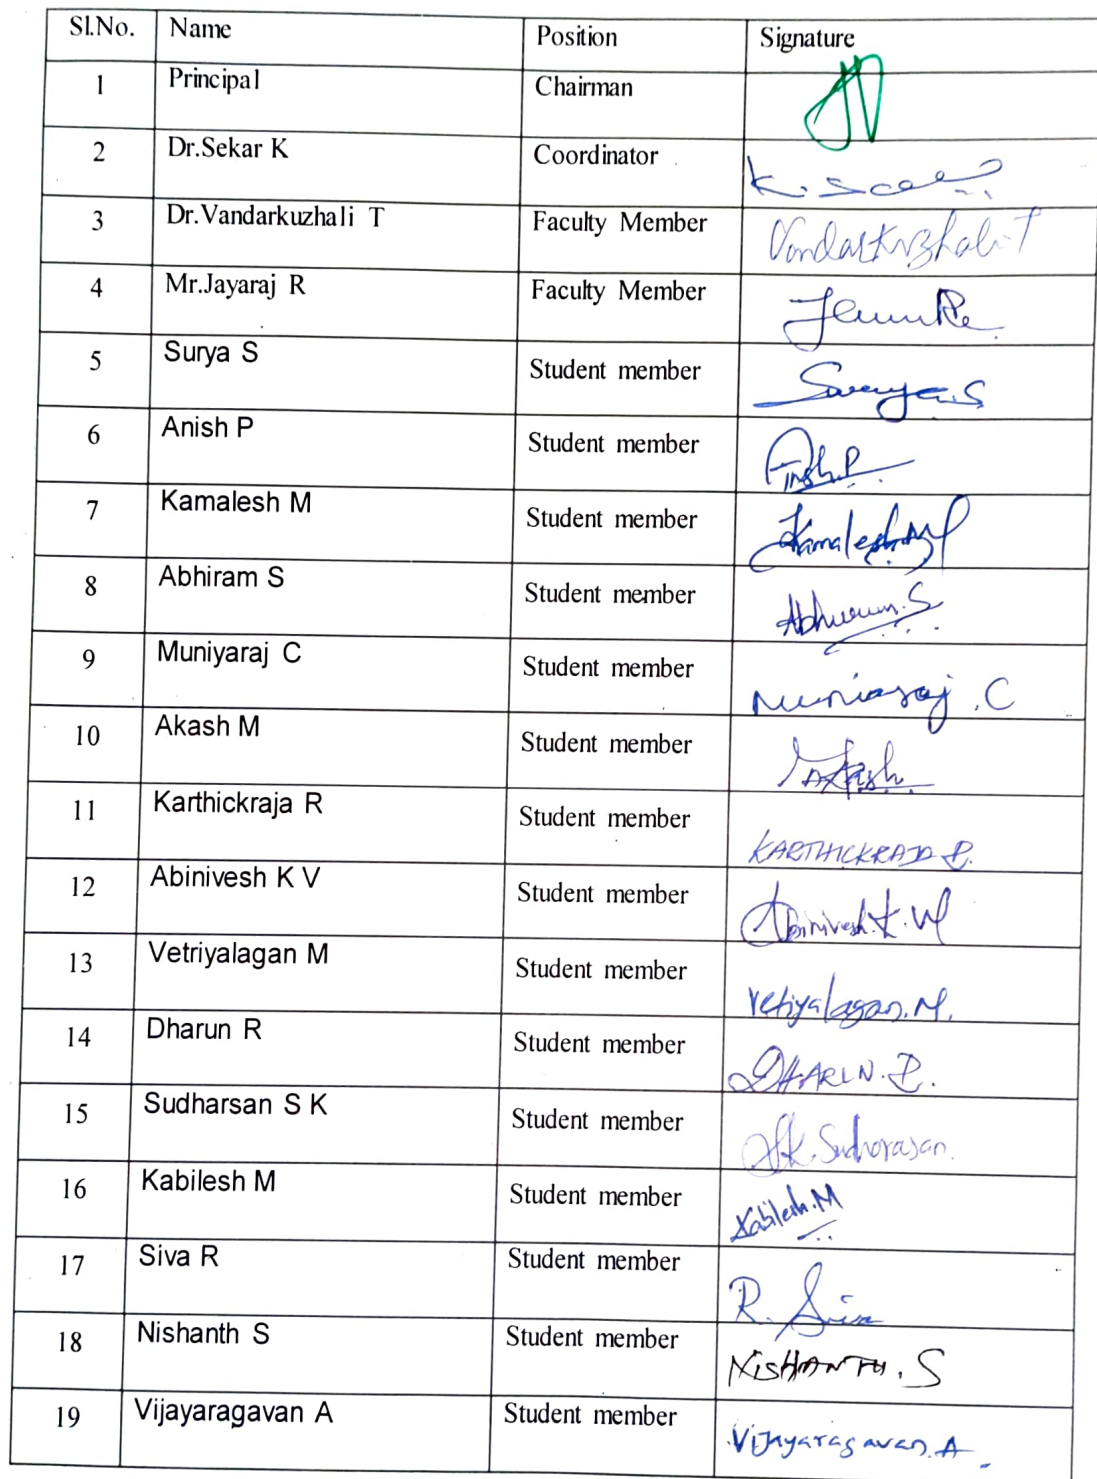 Sl.No. Name Position Signature
1 Principal Chairman
2 Dr.Sekar K Coordinator
3 Dr.Vandarkuzhali T Faculty Member Vandarkuzhali T
4 Mr.Jayaraj R Faculty Member
5 Surya S Student member Surya.S
6 Anish P Student member Anish.P
7 Kamalesh M Student member Kamalesh.M
8 Abhiram S Student member Abhiram.S
9 Muniyaraj C Student member Muniaraj .C
10 Akash M Student member Akash
11 Karthickraja R Student member KARTHICKRAJA R.
12 Abinivesh K V Student member Abinivesh.K.V
13 Vetriyalagan M Student member Vetiyalagan.M.
14 Dharun R Student member DHARUN.R.
15 Sudharsan S K Student member S.K. Sudharasan.
16 Kabilesh M Student member Kabilesh.M
17 Siva R Student member R. Siva
18 Nishanth S Student member NISHANTH.S
19 Vijayaragavan A Student member Vijayaragavan.A